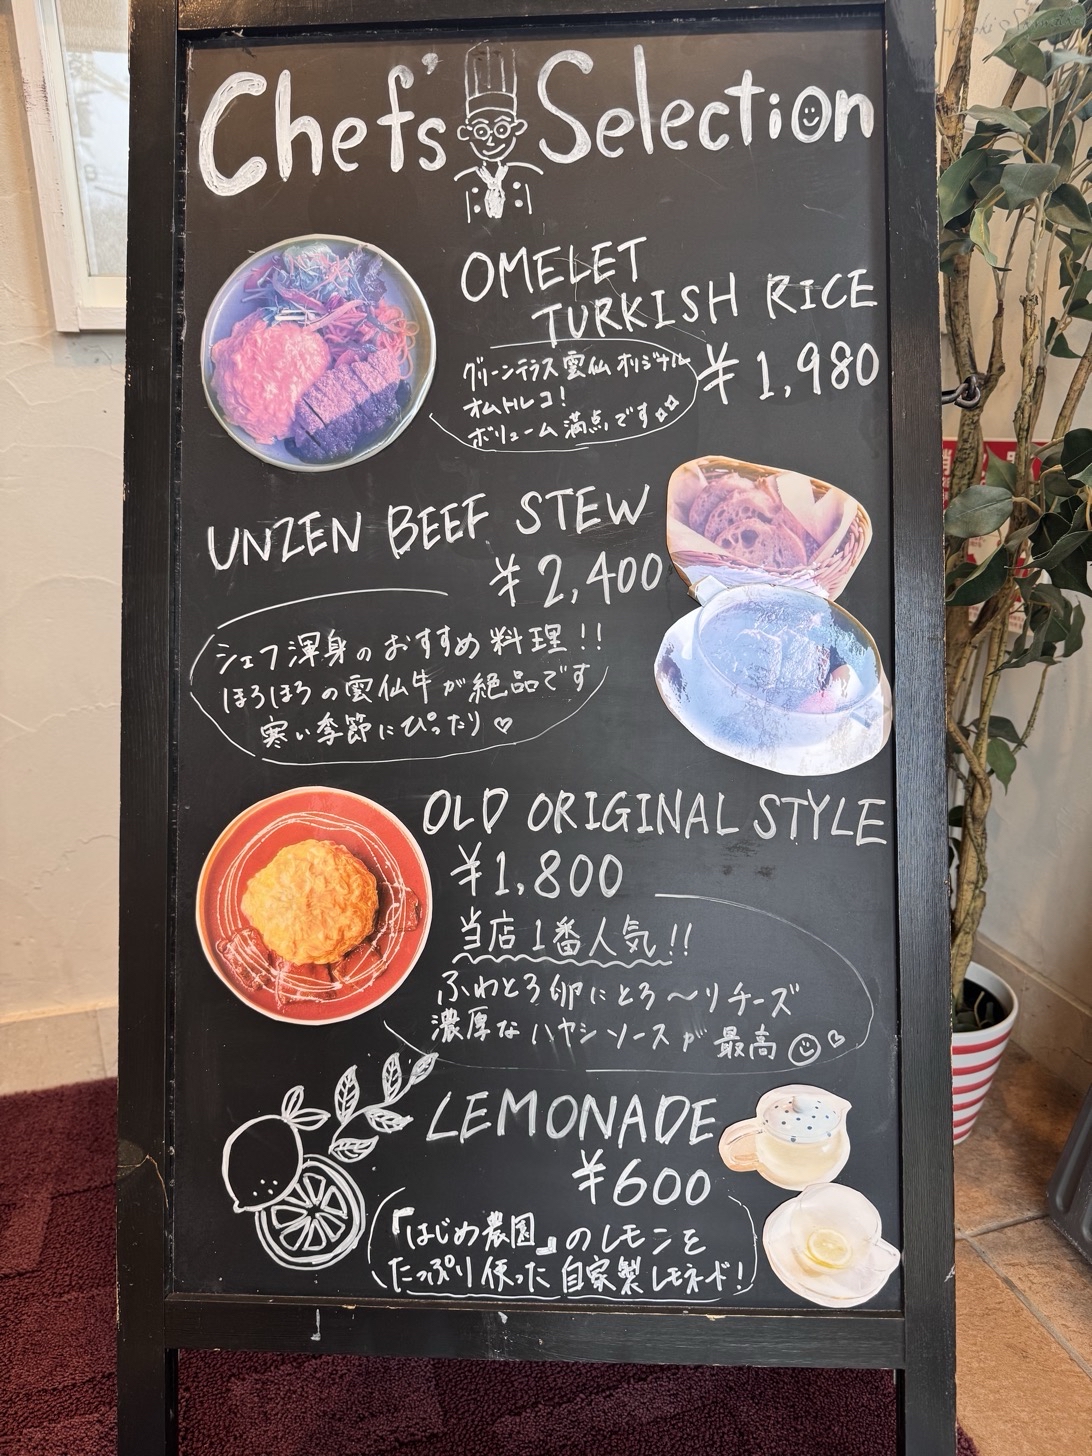 Chef's Selection
OMELET
TURKISH RICE
グリーンテラス雲仙オリジナル
オムトルコ!
ボリューム満点です
¥1,980
UNZEN BEEF STEW
¥2,400
シェフ渾身のおすすめ料理!!
ほろほろの雲仙牛が絶品です
寒い季節にぴったり♡
OLD ORIGINAL STYLE
¥1,800
当店1番人気!!
ふわとろ卵にとろ〜りチーズ
濃厚なハヤシソースが最高☺♡
LEMONADE
¥600
『はじめ農園』のレモンを
たっぷり使った自家製レモネード!